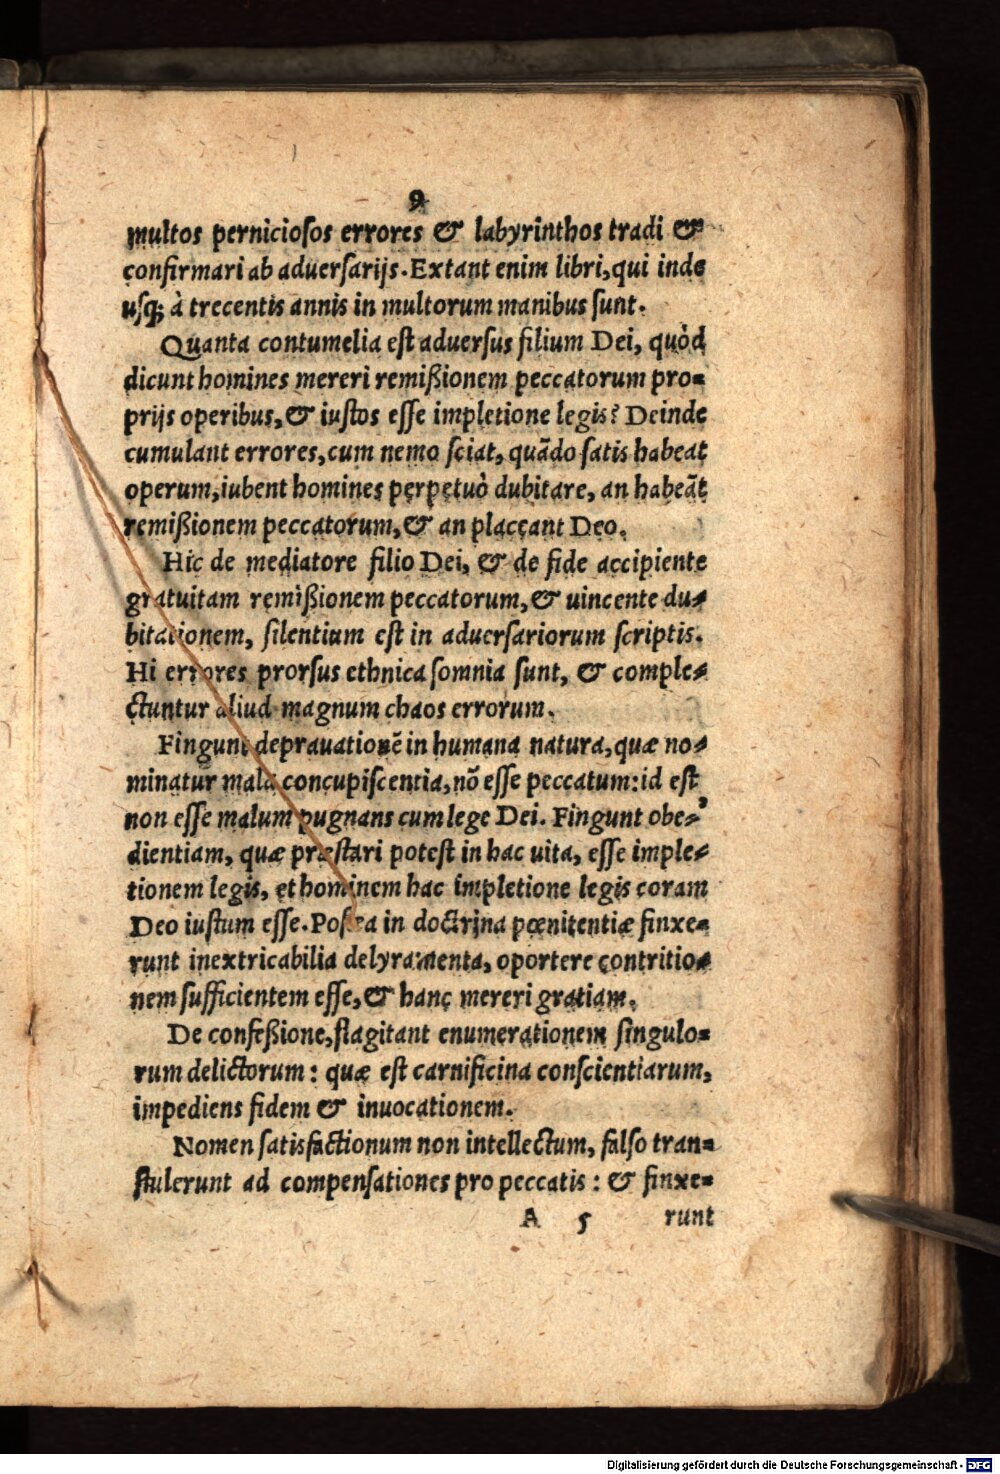 9
multos perniciosos errores & labyrinthos tradi &
confirmari ab aduersarijs. Extant enim libri, qui inde
usq; à trecentis annis in multorum manibus sunt.
Quanta contumelia est aduersus filium Dei, quòd
dicunt homines mereri remißionem peccatorum pro-
prijs operibus, & iustos esse impletione legis? Deinde
cumulant errores, cum nemo sciat, quãdo satis habeat
operum, iubent homines perpetuò dubitare, an habeãt
remißionem peccatorum, & an placeant Deo.
Hic de mediatore filio Dei, & de fide accipiente
gratuitam remißionem peccatorum, & uincente du-
bitationem, silentium est in aduersariorum scriptis.
Hi errores prorsus ethnica somnia sunt, & comple-
ctuntur aliud magnum chaos errorum.
Fingunt deprauationẽ in humana natura, quæ no-
minatur mala concupiscentia, nõ esse peccatum: id est
non esse malum pugnans cum lege Dei. Fingunt obe-
dientiam, quæ præstari potest in hac uita, esse imple-
tionem legis, et hominem hac impletione legis coram
Deo iustum esse. Postea in doctrina pœnitentiæ finxe-
runt inextricabilia delyramenta, oportere contritio-
nem sufficientem esse, & hanc mereri gratiam.
De confeßione, flagitant enumerationem singulo-
rum delictorum: quæ est carnificina conscientiarum,
impediens fidem & inuocationem.
Nomen satisfactionum non intellectum, falso tran-
stulerunt ad compensationes pro peccatis: & finxe-
A 5 runt
Digitalisierung gefördert durch die Deutsche Forschungsgemeinschaft - DFG